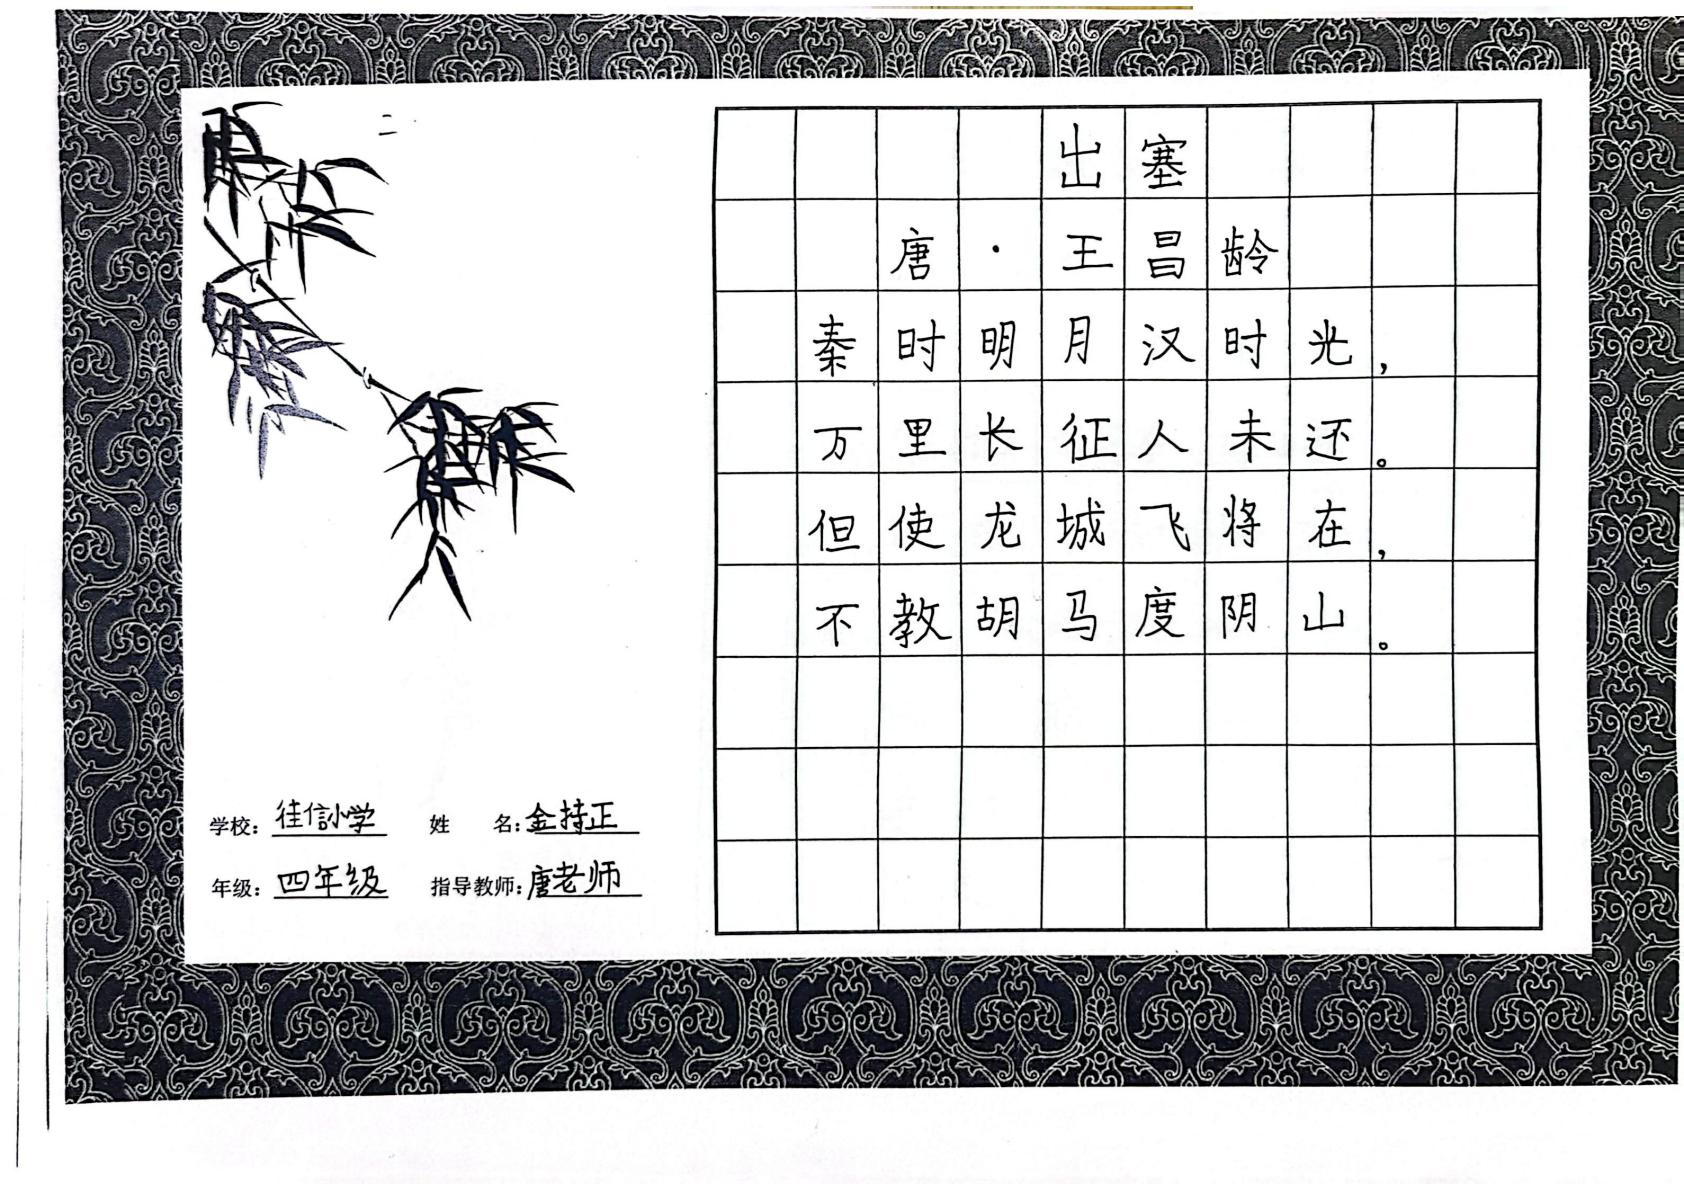 二
出塞
唐·王昌龄
秦时明月汉时光，
万里长征人未还。
但使龙城飞将在，
不教胡马度阴山。
学校：佳信小学 姓 名：金持正
年级：四年级 指导教师：唐老师